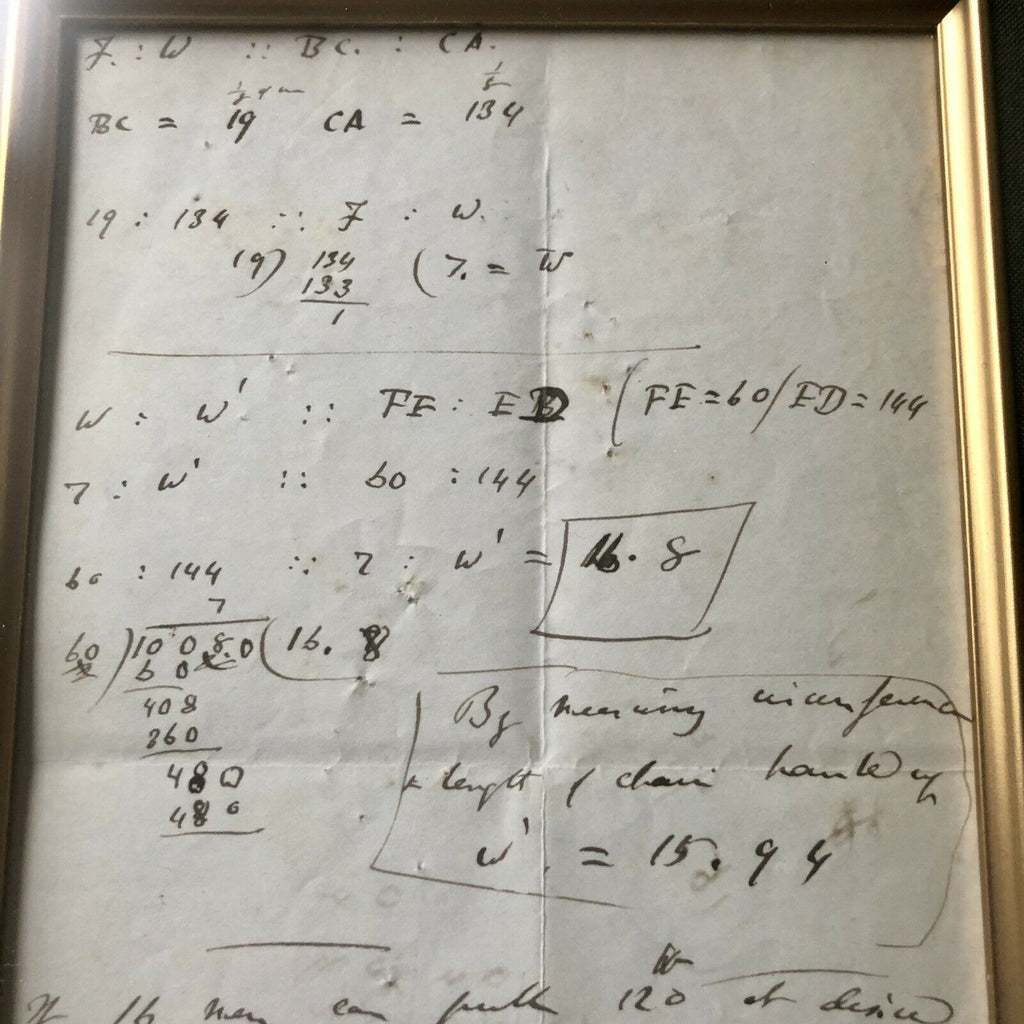 F : W :: BC. : CA.
BC = 19 CA = 134
19 : 134 :: F : W.
19) 134 ( 7. = W
133
1
W : W' :: FE : ED ( FE = 60 / ED = 144
7 : W' :: 60 : 144
60 : 144 :: 7 : W' = 16. 8
7
60 ) 10 0 8.0 ( 16. 8
6 0
408
360
480
480
By measuring circumference
& length of chain hauled up
W' = 15.94
If 16 men can pull 120